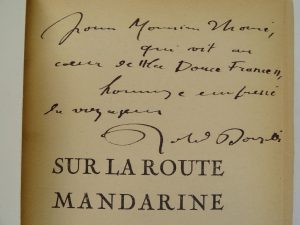 pour Monsieur
qui vit au
cœur de "la Douce France",
hommage empressé
du voyageur
Roland Dorgelès
SUR LA ROUTE
MANDARINE